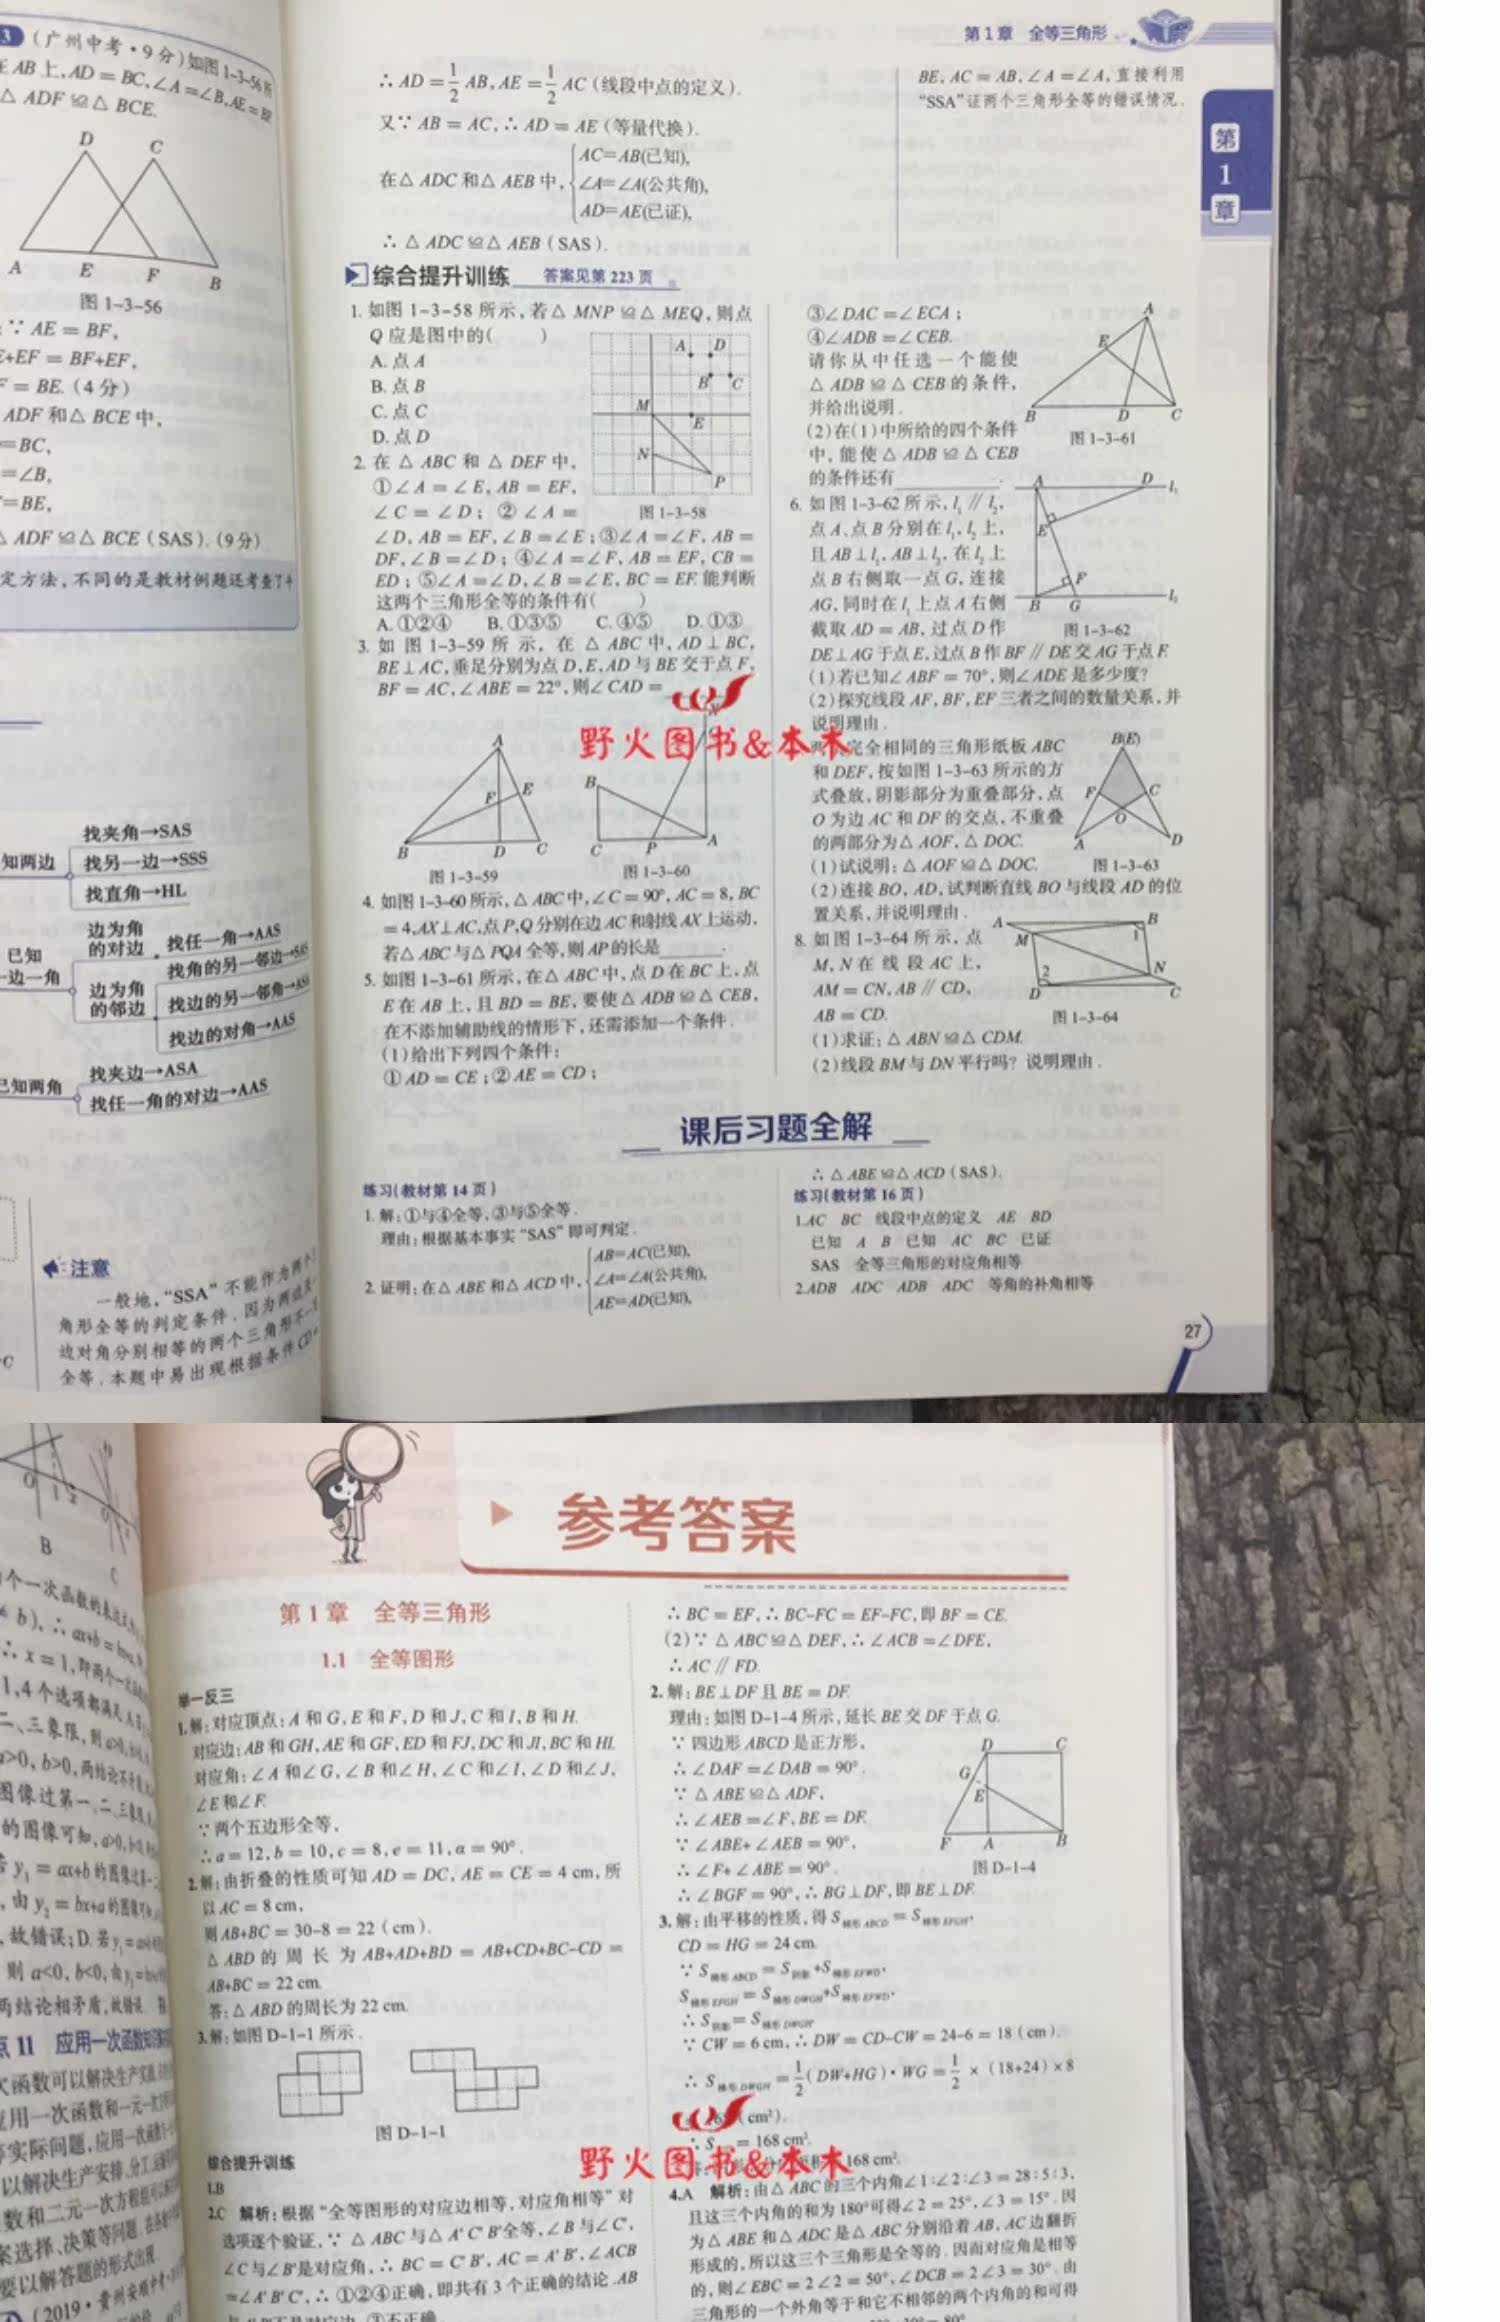 3 (广州中考·9分)如图1-3-56所
在AB上,AD=BC,∠A=∠B,AE=BF
△ADF≌△BCE.
D C
A E F B
图1-3-56
∵AE=BF,
E+EF=BF+EF,
F=BE.(4分)
ADF和△BCE中,
=BC,
=∠B,
=BE,
△ADF≌△BCE(SAS).(9分)
定方法,不同的是教材例题还考查了
知两边
找夹角→SAS
找另一边→SSS
找直角→HL
已知
一边一角
边为角
的对边
找任一角→AAS
边为角
的邻边
找角的另一邻边→SAS
找边的另一邻角→ASA
找边的对角→AAS
已知两角
找夹边→ASA
找任一角的对边→AAS
注意
一般地,“SSA”不能作为两个
角形全等的判定条件.因为两边及
边对角分别相等的两个三角形不一
全等.本题中易出现根据条件CD=
第1章 全等三角形
第
1
章
∴AD=1/2AB,AE=1/2AC(线段中点的定义).
又∵AB=AC,∴AD=AE(等量代换).
在△ADC和△AEB中,
AC=AB(已知),
∠A=∠A(公共角),
AD=AE(已证),
∴△ADC≌△AEB(SAS).
BE,AC=AB,∠A=∠A,直接利用
“SSA”证两个三角形全等的错误情况.
综合提升训练 答案见第223页
1.如图1-3-58所示,若△MNP≌△MEQ,则点
Q应是图中的( )
A.点A
B.点B
C.点C
D.点D
A D
B C
M E
N P
图1-3-58
2.在△ABC和△DEF中,
①∠A=∠E,AB=EF,
∠C=∠D;②∠A=
∠D,AB=EF,∠B=∠E;③∠A=∠F,AB=
DF,∠B=∠D;④∠A=∠F,AB=EF,CB=
ED;⑤∠A=∠D,∠B=∠E,BC=EF.能判断
这两个三角形全等的条件有( )
A.①②④ B.①③⑤ C.④⑤ D.①③
3.如图1-3-59所示,在△ABC中,AD⊥BC,
BE⊥AC,垂足分别为点D,E,AD与BE交于点F,
BF=AC,∠ABE=22°,则∠CAD=
野火图书&本木
A
F E
B D C
图1-3-59
X
B
C P A
图1-3-60
4.如图1-3-60所示,△ABC中,∠C=90°,AC=8,BC
=4,AX⊥AC,点P,Q分别在边AC和射线AX上运动,
若△ABC与△PQA全等,则AP的长是______.
5.如图1-3-61所示,在△ABC中,点D在BC上,点
E在AB上,且BD=BE,要使△ADB≌△CEB,
在不添加辅助线的情形下,还需添加一个条件.
(1)给出下列四个条件:
①AD=CE;②AE=CD;
③∠DAC=∠ECA;
④∠ADB=∠CEB.
请你从中任选一个能使
△ADB≌△CEB的条件,
并给出说明.
(2)在(1)中所给的四个条件
中,能使△ADB≌△CEB
的条件还有__________.
A
E
B D C
图1-3-61
6.如图1-3-62所示,l₁∥l₂,
点A、点B分别在l₁,l₂上,
且AB⊥l₁,AB⊥l₂,在l₂上
点B右侧取一点G,连接
AG,同时在l₁上点A右侧
截取AD=AB,过点D作
DE⊥AG于点E,过点B作BF∥DE交AG于点F.
(1)若已知∠ABF=70°,则∠ADE是多少度?
(2)探究线段AF,BF,EF三者之间的数量关系,并
说明理由.
A D l₁
E
F
B G l₂
图1-3-62
完全相同的三角形纸板ABC
和DEF,按如图1-3-63所示的方
式叠放,阴影部分为重叠部分,点
O为边AC和DF的交点,不重叠
的两部分为△AOF,△DOC.
(1)试说明:△AOF≌△DOC.
(2)连接BO,AD,试判断直线BO与线段AD的位
置关系,并说明理由.
B(E)
F C
O
A D
图1-3-63
8.如图1-3-64所示,点
M,N在线段AC上,
AM=CN,AB∥CD,
AB=CD.
(1)求证:△ABN≌△CDM.
(2)线段BM与DN平行吗?说明理由.
A B
M 1
2 N
D C
图1-3-64
课后习题全解
练习(教材第14页)
1.解:①与④全等,③与⑤全等.
理由:根据基本事实“SAS”即可判定.
2.证明:在△ABE和△ACD中,
AB=AC(已知),
∠A=∠A(公共角),
AE=AD(已知),
∴△ABE≌△ACD(SAS).
练习(教材第16页)
1.AC BC 线段中点的定义 AE BD
已知 A B 已知 AC BC 已证
SAS 全等三角形的对应角相等
2.ADB ADC ADB ADC 等角的补角相等
27
B
C
个一次函数的表达
∴x=1,即两个一次
1,4个选项都满足
二、三象限,则a>0,
a>0,b>0,两结论不
图像过第一、二、三象限
的图像可知,a>0,b
y₁=ax+b的图像过第一
,由y₂=bx+a的图像可
,故错误;D.若y₁=
则a<0,b<0,由y₂=
两结论相矛盾,故错误.
点11 应用一次函数知识
次函数可以解决生产实践
应用一次函数和一元一次
等实际问题,应用一次函数
以解决生产安排、分工
数和二元一次方程组可以
案选择、决策等问题,在
要以解答题的形式出现
(2019·贵州安顺中考
参考答案
第1章 全等三角形
1.1 全等图形
举一反三
1.解:对应顶点:A和G,E和F,D和J,C和I,B和H.
对应边:AB和GH,AE和GF,ED和FJ,DC和JI,BC和HI.
对应角:∠A和∠G,∠B和∠H,∠C和∠I,∠D和∠J,
∠E和∠F.
∵两个五边形全等,
∴a=12,b=10,c=8,e=11,α=90°.
2.解:由折叠的性质可知AD=DC,AE=CE=4cm,所
以AC=8cm,
则AB+BC=30-8=22(cm).
△ABD的周长为AB+AD+BD=AB+CD+BC-CD=
AB+BC=22cm.
答:△ABD的周长为22cm.
3.解:如图D-1-1所示.
图D-1-1
综合提升训练
1.B
2.C 解析:根据“全等图形的对应边相等,对应角相等”对
选项逐个验证,∵△ABC与△A'C'B'全等,∠B与∠C',
∠C与∠B'是对应角,∴BC=C'B',AC=A'B',∠ACB
=∠A'B'C',∴①②④正确,即共有3个正确的结论.AB
∴BC=EF,∴BC-FC=EF-FC,即BF=CE.
(2)∵△ABC≌△DEF,∴∠ACB=∠DFE,
∴AC∥FD.
2.解:BE⊥DF且BE=DF.
理由:如图D-1-4所示,延长BE交DF于点G.
∵四边形ABCD是正方形,
∴∠DAF=∠DAB=90°.
∵△ABE≌△ADF,
∴∠AEB=∠F,BE=DF.
∵∠ABE+∠AEB=90°,
∴∠F+∠ABE=90°.
∴∠BGF=90°,∴BG⊥DF,即BE⊥DF.
D C
G
E
F A B
图D-1-4
3.解:由平移的性质,得S梯形ABCD=S梯形EFGH,
CD=HG=24cm.
∵S梯形ABCD=S阴影+S梯形EFWD,
S梯形EFGH=S梯形DWGH+S梯形EFWD,
∴S阴影=S梯形DWGH.
∵CW=6cm,∴DW=CD-CW=24-6=18(cm).
∴S梯形DWGH=1/2(DW+HG)·WG=1/2×(18+24)×8
(cm²).
∴S =168cm².
168cm².
野火图书&本木
4.A 解析:由△ABC的三个内角∠1:∠2:∠3=28:5:3,
且这三个内角的和为180°可得∠2=25°,∠3=15°.因
为△ABE和△ADC是△ABC分别沿着AB,AC边翻折
形成的,所以这三个三角形是全等的.因而对应角是相等
的,则∠EBC=2∠2=50°,∠DCB=2∠3=30°.由
三角形的一个外角等于和它不相邻的两个内角的和可得